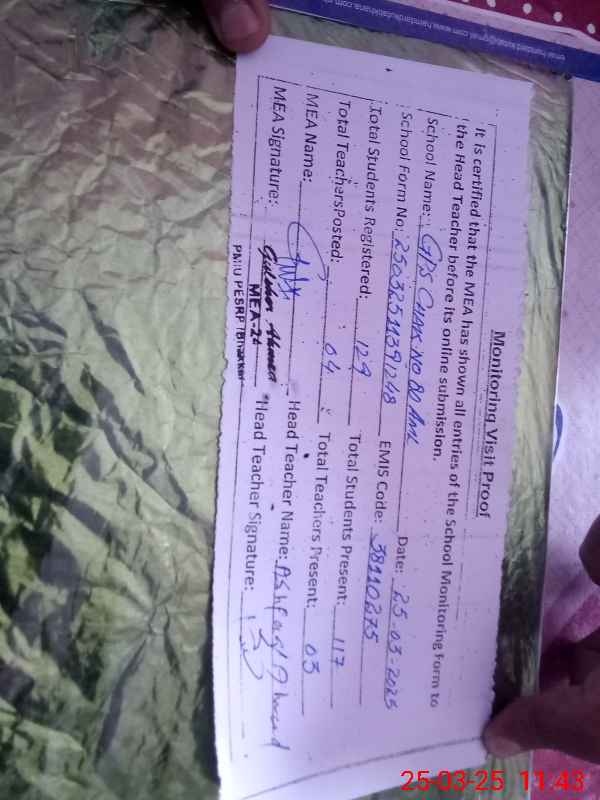 Monitoring Visit Proof
It is certified that the MEA has shown all entries of the School Monitoring Form to
the Head Teacher before its online submission.
School Name: GPS CHAK NO 80 AML Date: 25-03-2025
School Form No: EMIS Code: 38110275
Total Students Registered: 129 Total Students Present: 117
Total TeachersPosted: 04 Total Teachers Present: 03
MEA Name: Head Teacher Name:
MEA Signature: Gulsher Ahmed Head Teacher Signature:
MEA-26
PMIU PESRP (Bhakkar)
25-03-25 11:43